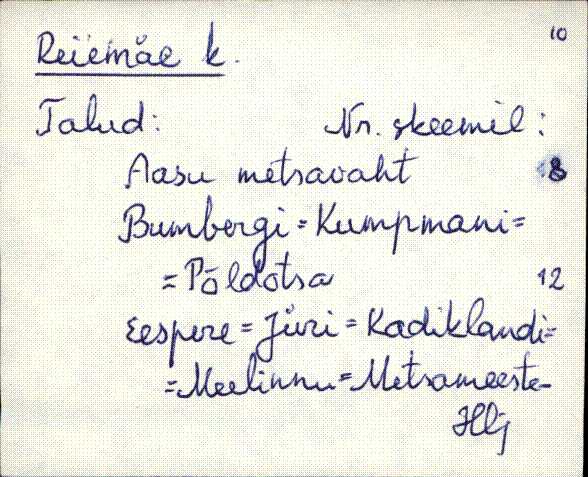 10
Reiemäe k.
Talud: Nr. skeemil:
Aasu metsavaht 8
Bumbergi = Kumpmani =
= Põldotsa 12
Eespere = Jüri = Kadiklandi =
= Meelinnu = Metsameeste-